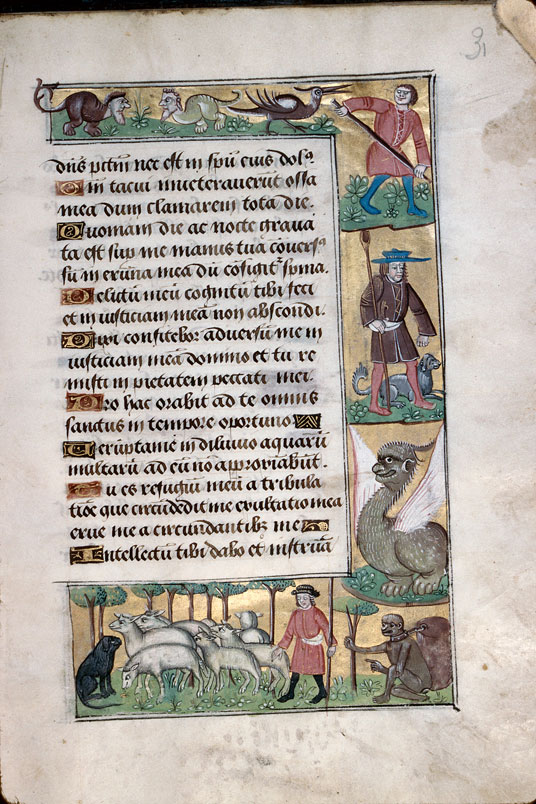 31
dn̄s pctm̄ nec est in spū eius dol⁹
Qm̄ tacui inueterauerūt ossa
mea dum clamarem tota die.
Quoniam die ac nocte grauа
ta est sup me manus tua cōuers⁹
sū in erūna mea dū cōfigit̄ spīna.
Delictū meū cognitū tibi feci
et in iusticiam meā non abscondi.
Dixi confitebor aduersū me in
iusticiam meā domino et tu re
misti in pietatem peccati mei.
Pro hac orabit ad te omnis
sanctus in tempore oportuno
Ueruptame in diluuio aquarū
multarū ad eū nō approxiābūt.
Tu es refugiū meū a tribula
tiōe que circūdedit me exultatio mea
erue me a circūdantibꝫ me
Intellectū tibi dabo et instruā